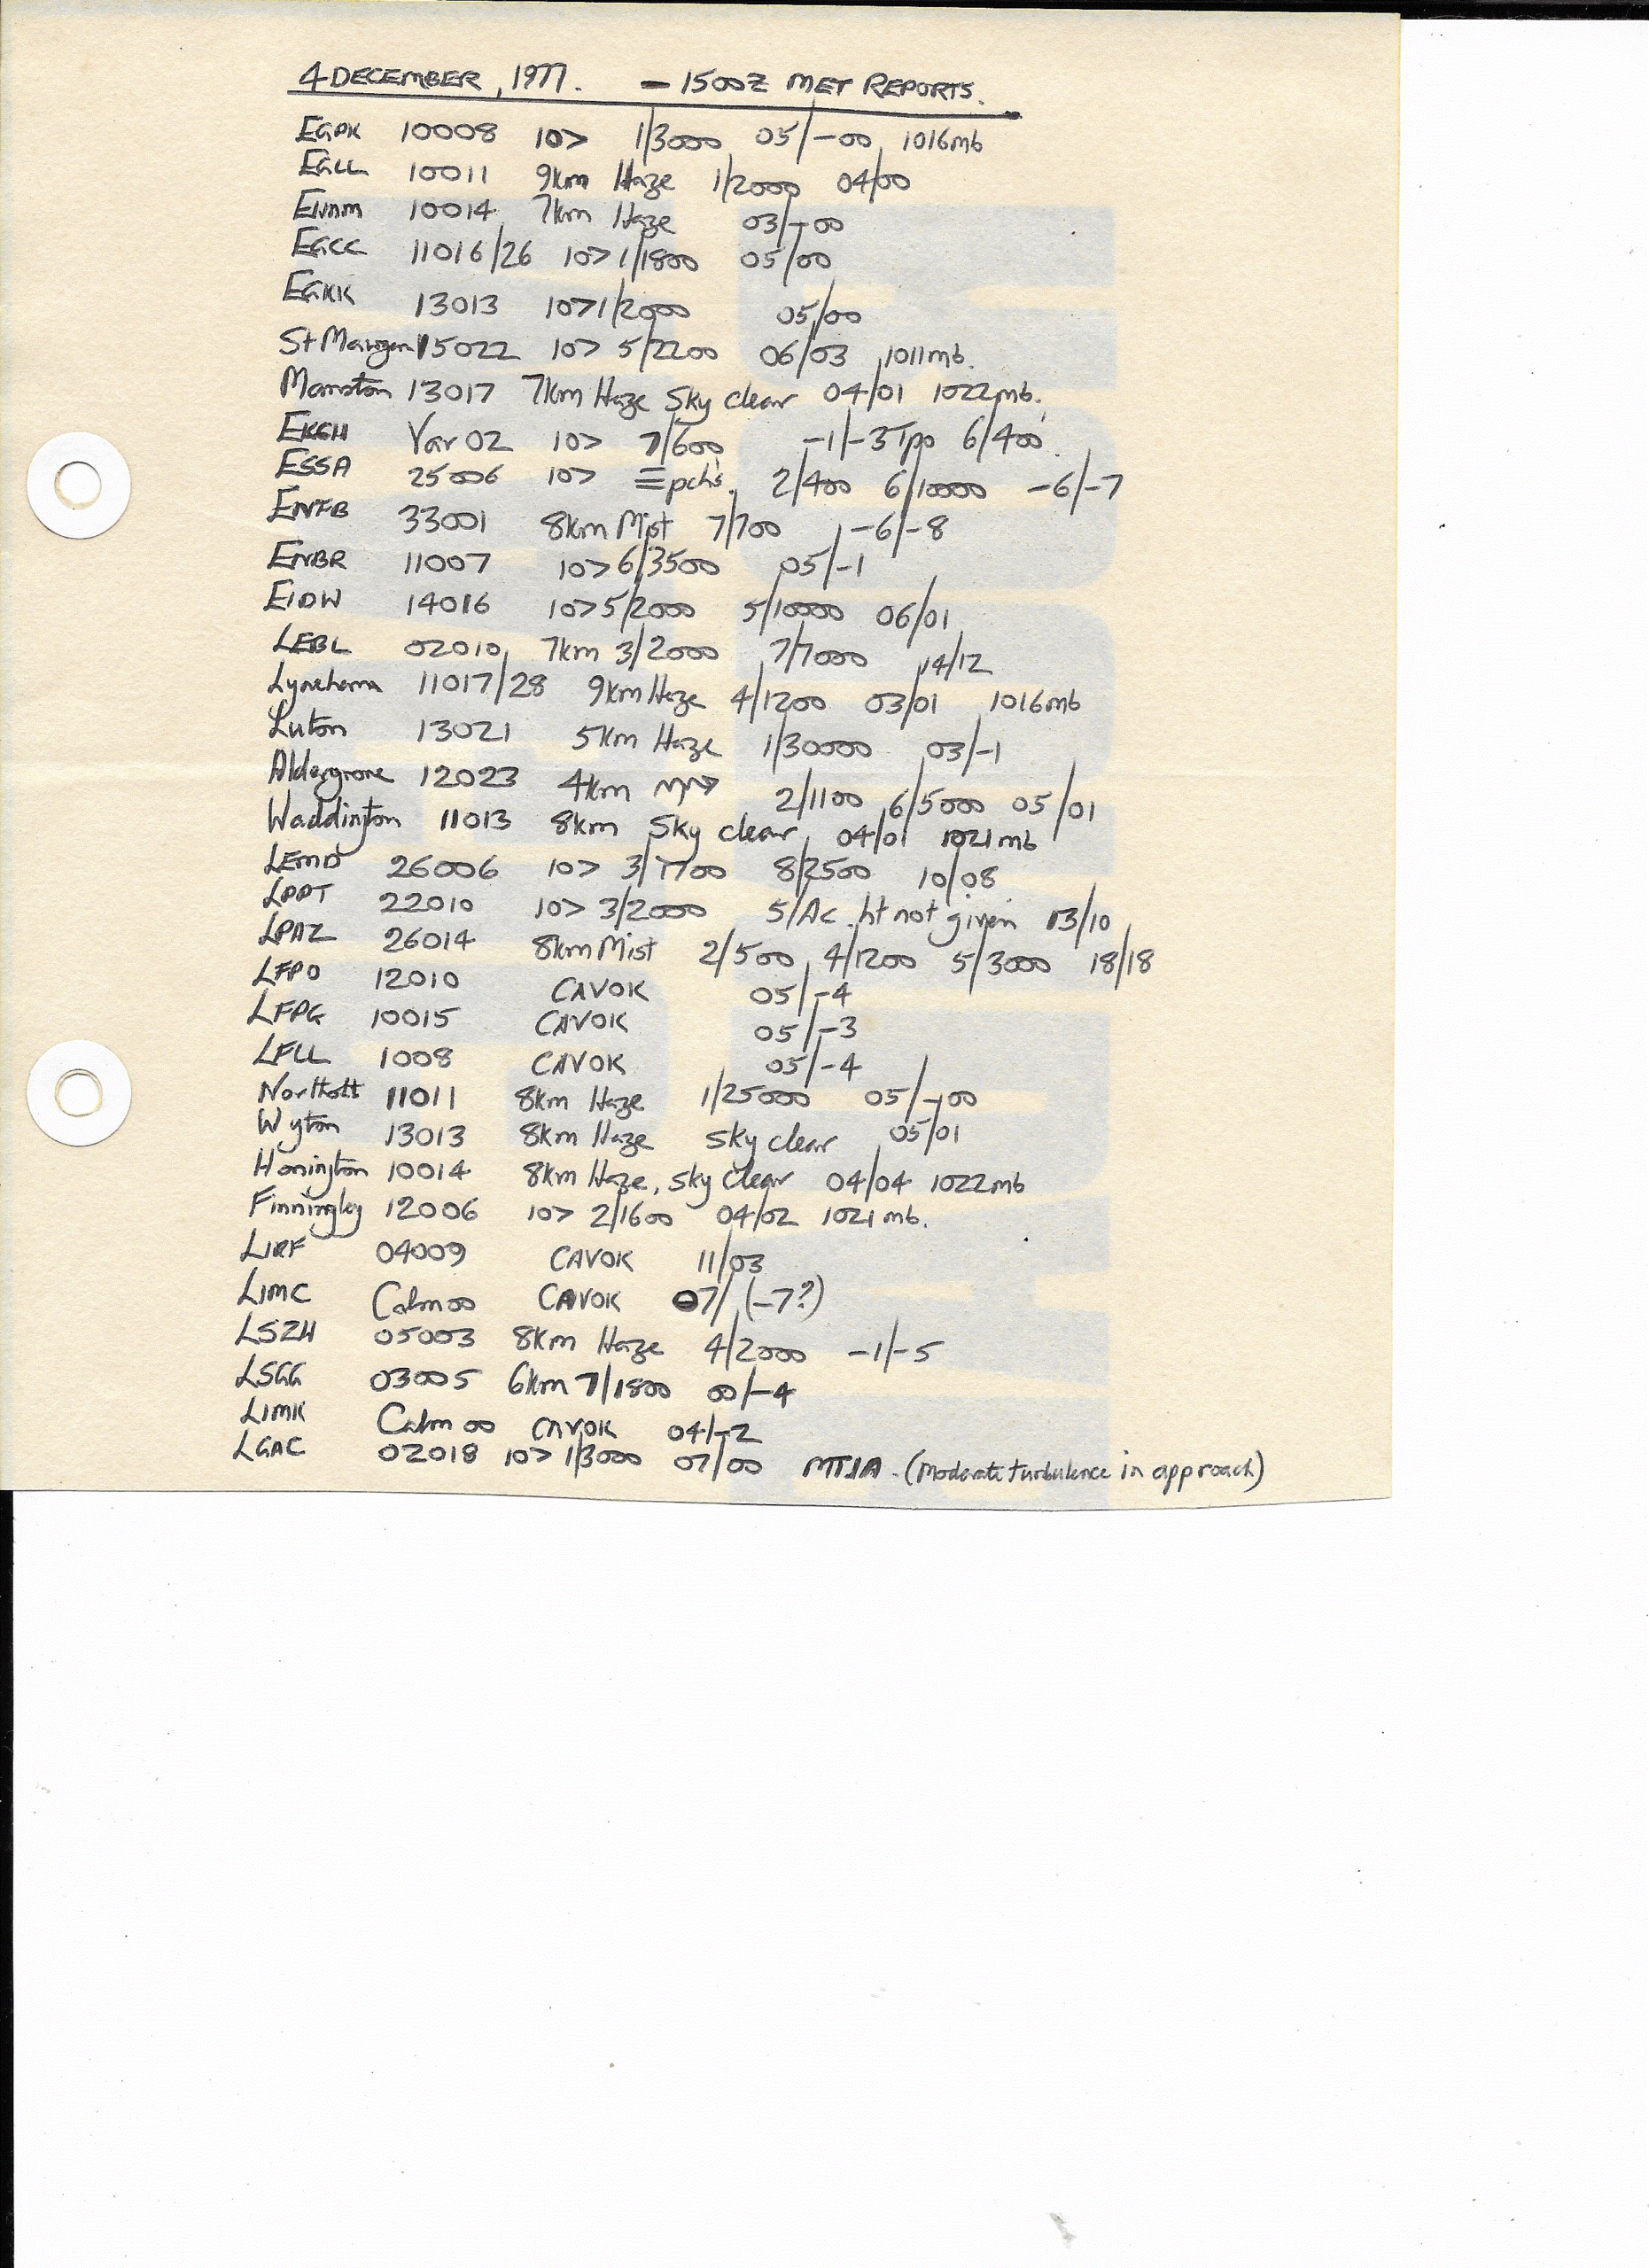 4 DECEMBER, 1977. — 1500Z MET REPORTS.
EGPK 10008 10> 1/3000 05/-00 1016mb
EGLL 10011 9km Haze 1/2000 04/00
10014 7km Haze 03/-00
EGCC 11016/26 10> 1/1800 05/00
EGKK 13013 10> 1/2000 05/00
St Mawgan 15022 10> 5/2200 06/03 1011mb.
Manston 13017 7km Haze Sky clear 04/01 1022mb.
EKCH Var 02 10> 7/600 -1/-3 Tpo 6/400
ESSA 25006 10> ≡ pchs. 2/400 6/10000 -6/-7
ENFB 33001 8km Mist 7/700 -6/-8
ENBR 11007 10> 6/3500 05/-1
EIDW 14016 10> 5/2000 5/10000 06/01
LEBL 02010 7km 3/2000 7/7000 14/12
Lyneham 11017/28 9km Haze 4/1200 03/01 1016mb
Luton 13021 5km Haze 1/30000 03/-1
Aldergrove 12023 4km 2/1100 6/5000 05/01
Waddington 11013 8km Sky clear 04/01 1021mb
LEMD 26006 10> 3/1700 8/2500 10/08
LPPT 22010 10> 3/2000 5/Ac. ht not given 13/10
LPAZ 26014 8km Mist 2/500 4/1200 5/3000 18/18
LFPO 12010 CAVOK 05/-4
LFPG 10015 CAVOK 05/-3
LFLL 1008 CAVOK 05/-4
Northolt 11011 8km Haze 1/25000 05/-00
Wyton 13013 8km Haze sky clear 05/01
Honington 10014 8km Haze, sky clear 04/04 1022mb
Finningley 12006 10> 2/1600 04/02 1021mb.
LIRF 04009 CAVOK 11/03
LIMC Calm 00 CAVOK 07/(-7?)
LSZH 05003 8km Haze 4/2000 -1/-5
LSGG 03005 6km 7/1800 00/-4
LIMK Calm 00 CAVOK 04/-2
LGAC 02018 10> 1/3000 07/00 MTIA. (Moderate turbulence in approach)